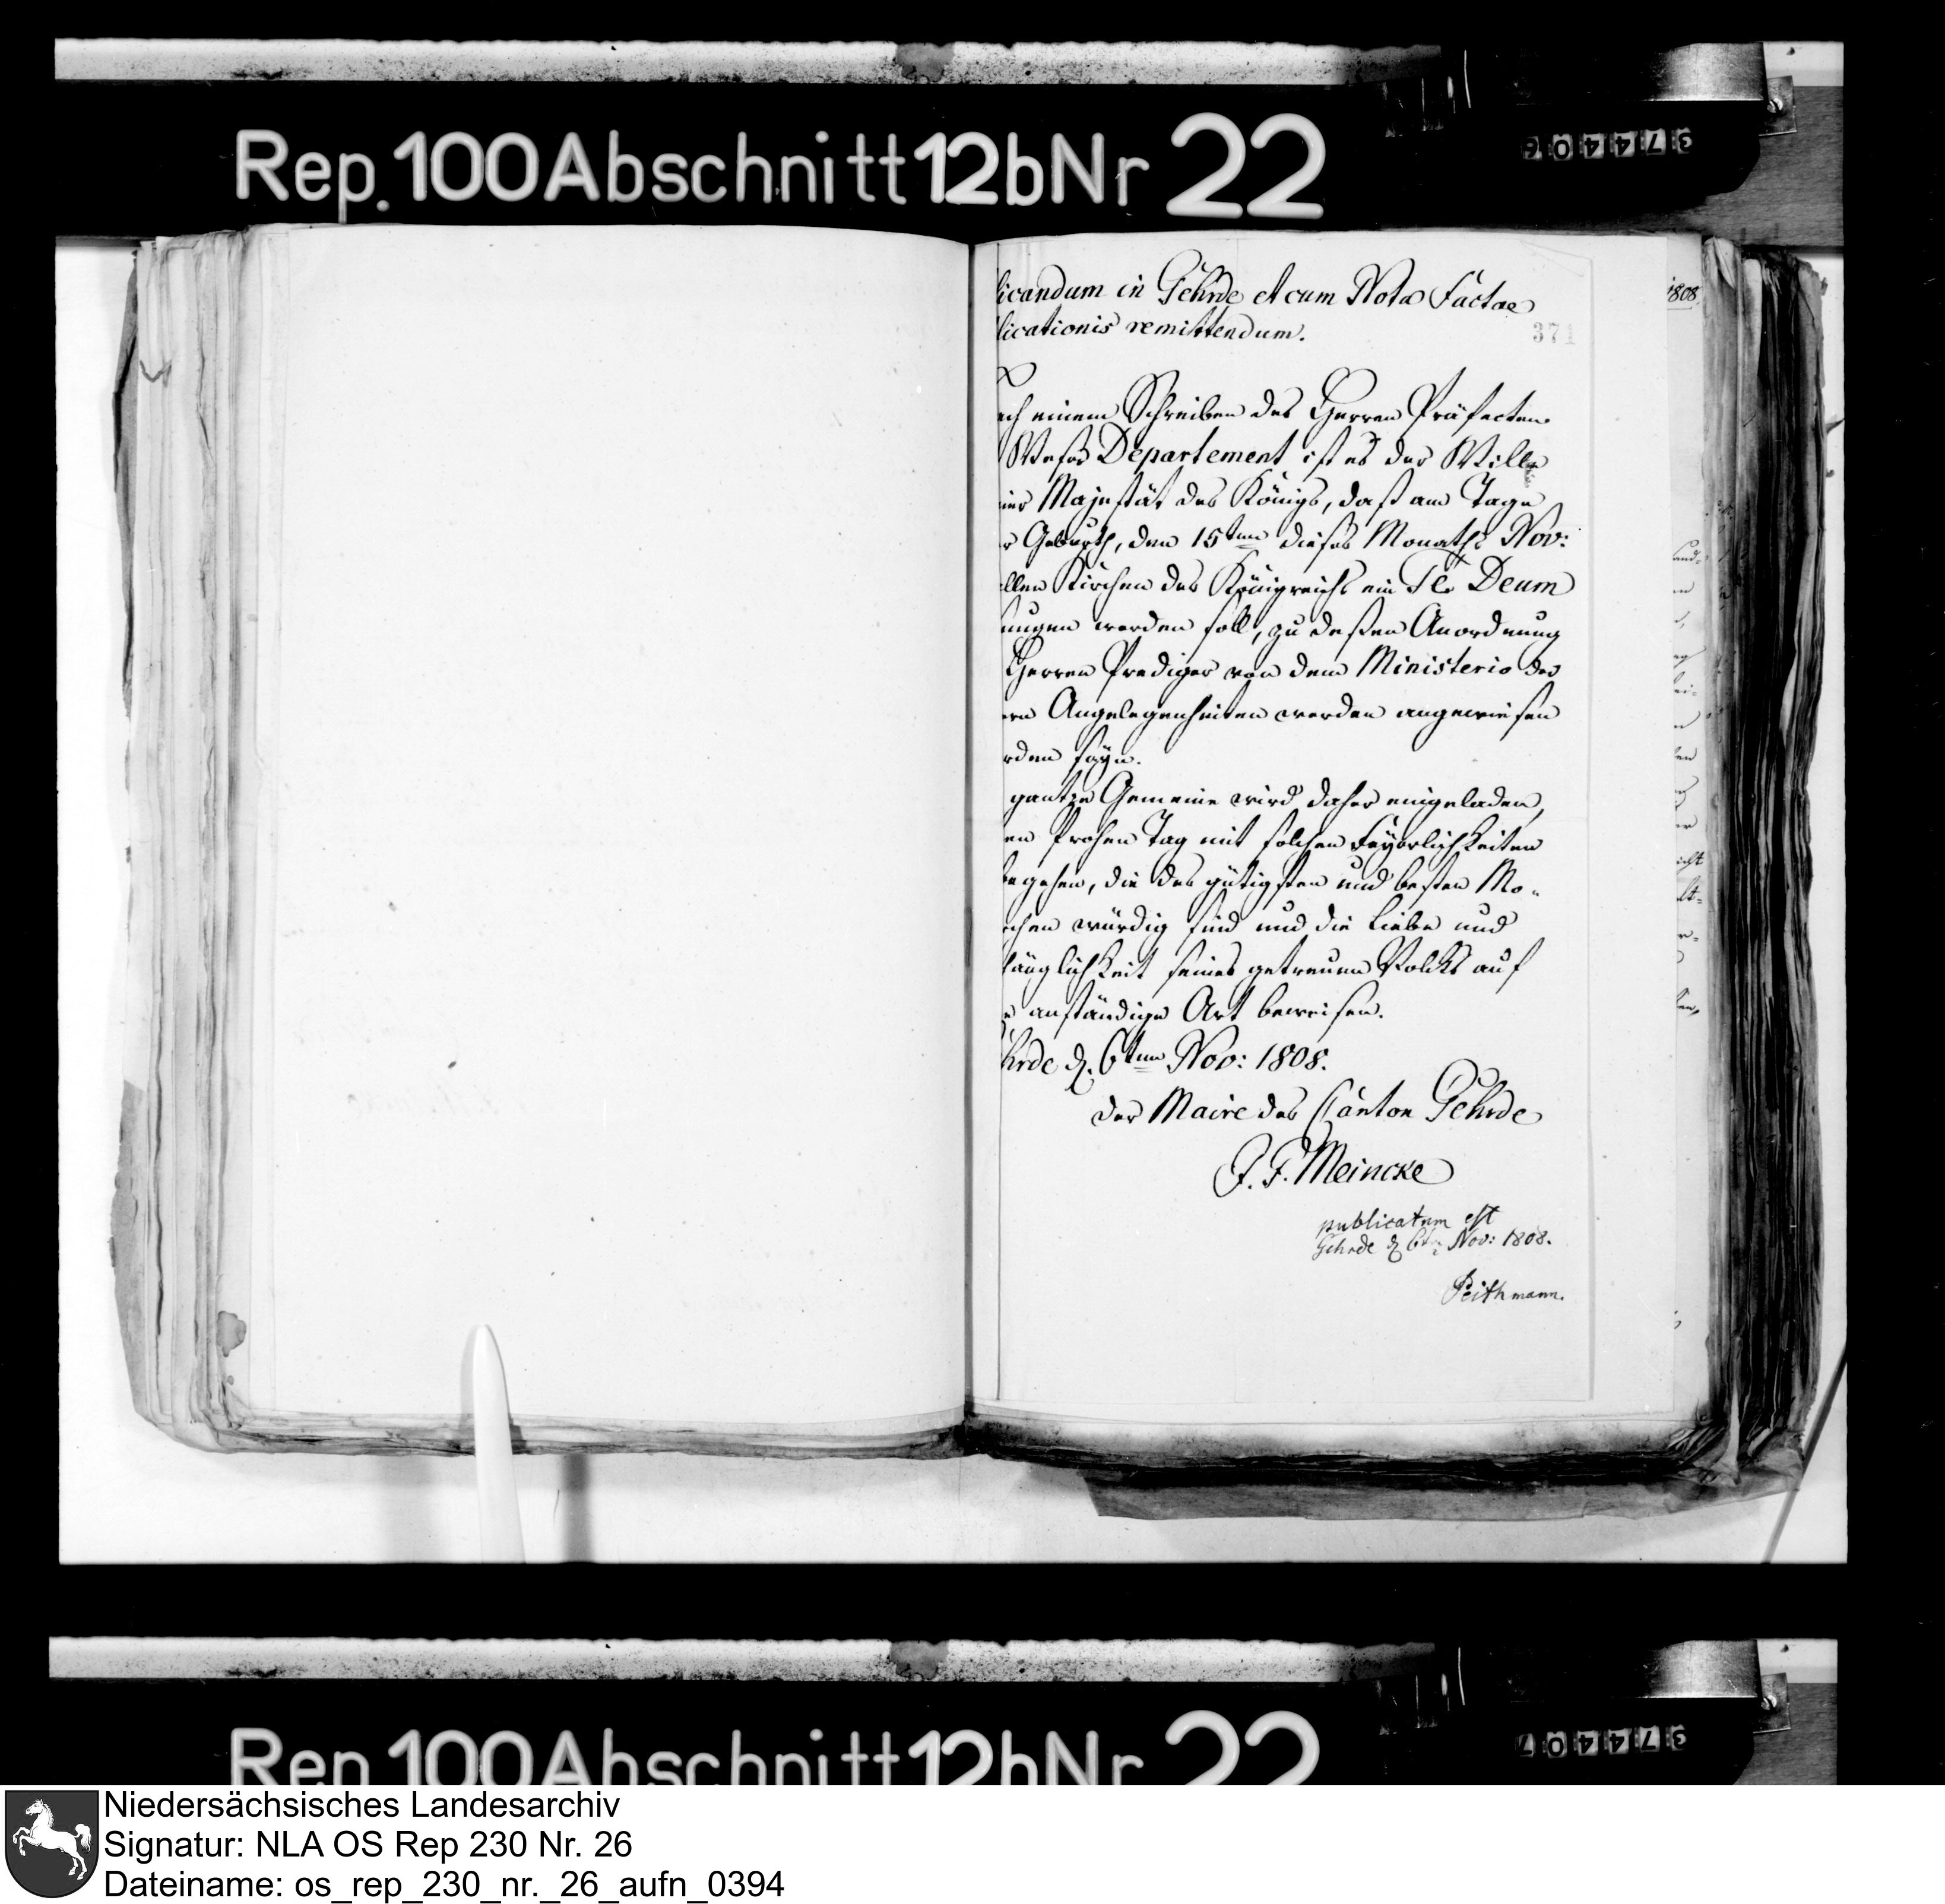 Rep. 100 Abschnitt 12b Nr 22
374406
licandum in Gehrde et cum Nota Factae
licationis remittendum.
371
1808
ch einem Schreiben des Herren Präfecten
Weser Departement ist es der Wille
ner Majestät des Königs, daß am Tage
r Geburth, den 15ten dieses Monaths Nov:
llen Kirchen des Königreichs ein Te Deum
ungen werden soll, zu deßen Anordnung
Herren Prediger von dem Ministerio der
ern Angelegenheiten werden angewiesen
rden seyn.
gantze Gemeine wird daher eingeladen,
en frohen Tag mit solchen Feyerlichkeiten
begehen, die des gütigsten und besten Mo-
chen würdig sind und die Liebe und
hänglichkeit seines getreuen Volcks auf
e anständige Art beweisen.
hrde d. 6ten Nov: 1808.
Der Maire des Canton Gehrde
J. F. Meincke
publicatum est
Gehrde d 6ten Nov: 1808.
Peithmann.
Rep. 100 Abschnitt 12b Nr 22
374407
Niedersächsisches Landesarchiv
Signatur: NLA OS Rep 230 Nr. 26
Dateiname: os_rep_230_nr._26_aufn_0394